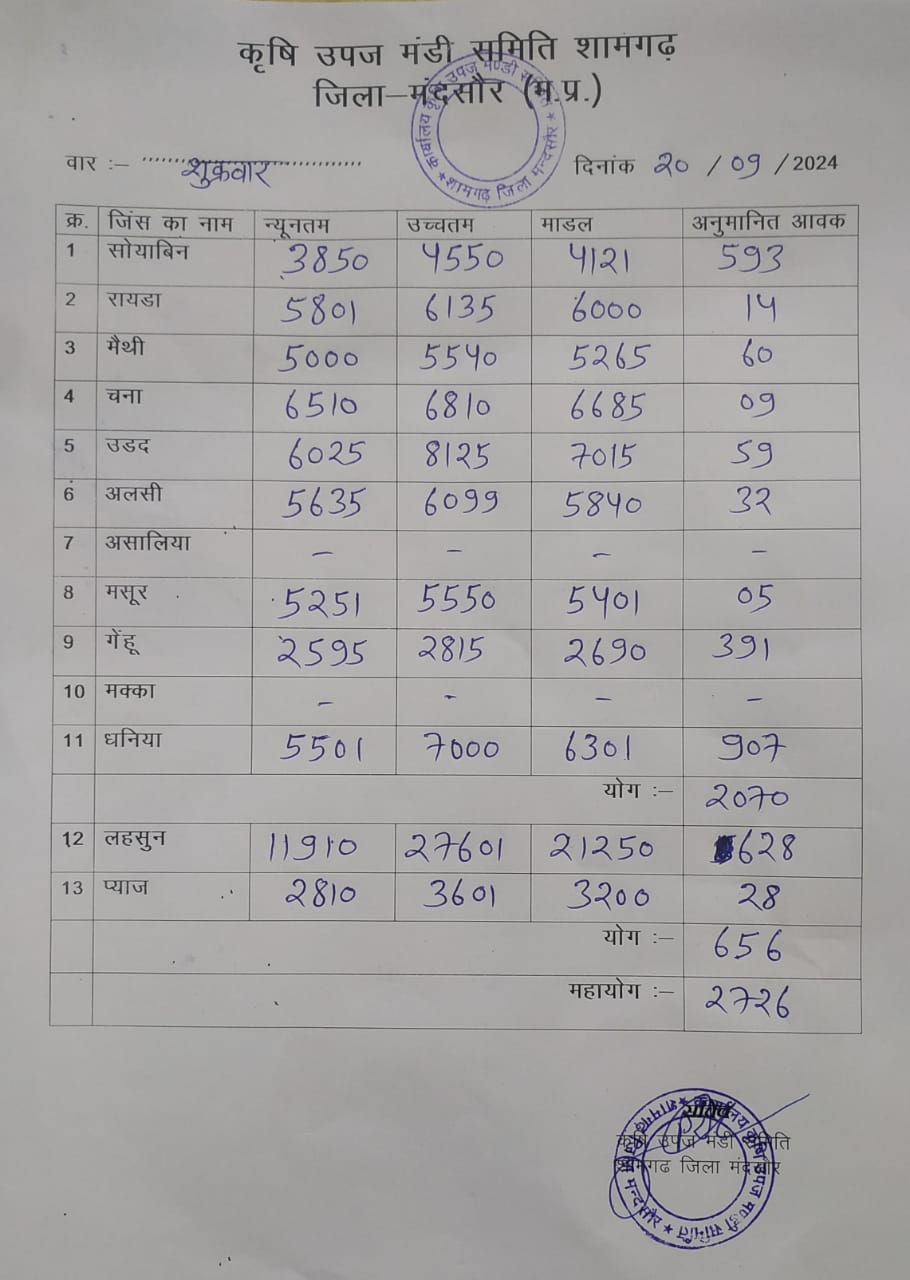 कृषि उपज मंडी समिति शामगढ़
जिला–मंदसौर (म.प्र.)
कार्यालय कृषि उपज मण्डी समिति ★ शामगढ़ जिला मन्दसौर ★
वार :– शुक्रवार दिनांक 20 / 09 / 2024
क्र. जिंस का नाम न्यूनतम उच्चतम माडल अनुमानित आवक
1 सोयाबिन 3850 4550 4121 593
2 रायडा 5801 6135 6000 14
3 मैथी 5000 5540 5265 60
4 चना 6510 6810 6685 09
5 उडद 6025 8125 7015 59
6 अलसी 5635 6099 5840 32
7 असालिया – – – –
8 मसूर 5251 5550 5401 05
9 गेंहू 2595 2815 2690 391
10 मक्का – – – –
11 धनिया 5501 7000 6301 907
योग :– 2070
12 लहसुन 11910 27601 21250 628
13 प्याज 2810 3601 3200 28
योग :– 656
महायोग :– 2726
सचिव
कृषि उपज मंडी समिति
शामगढ जिला मंदसौर
कार्यालय कृषि उपज मण्डी समिति ★ शामगढ़ जिला मन्दसौर ★